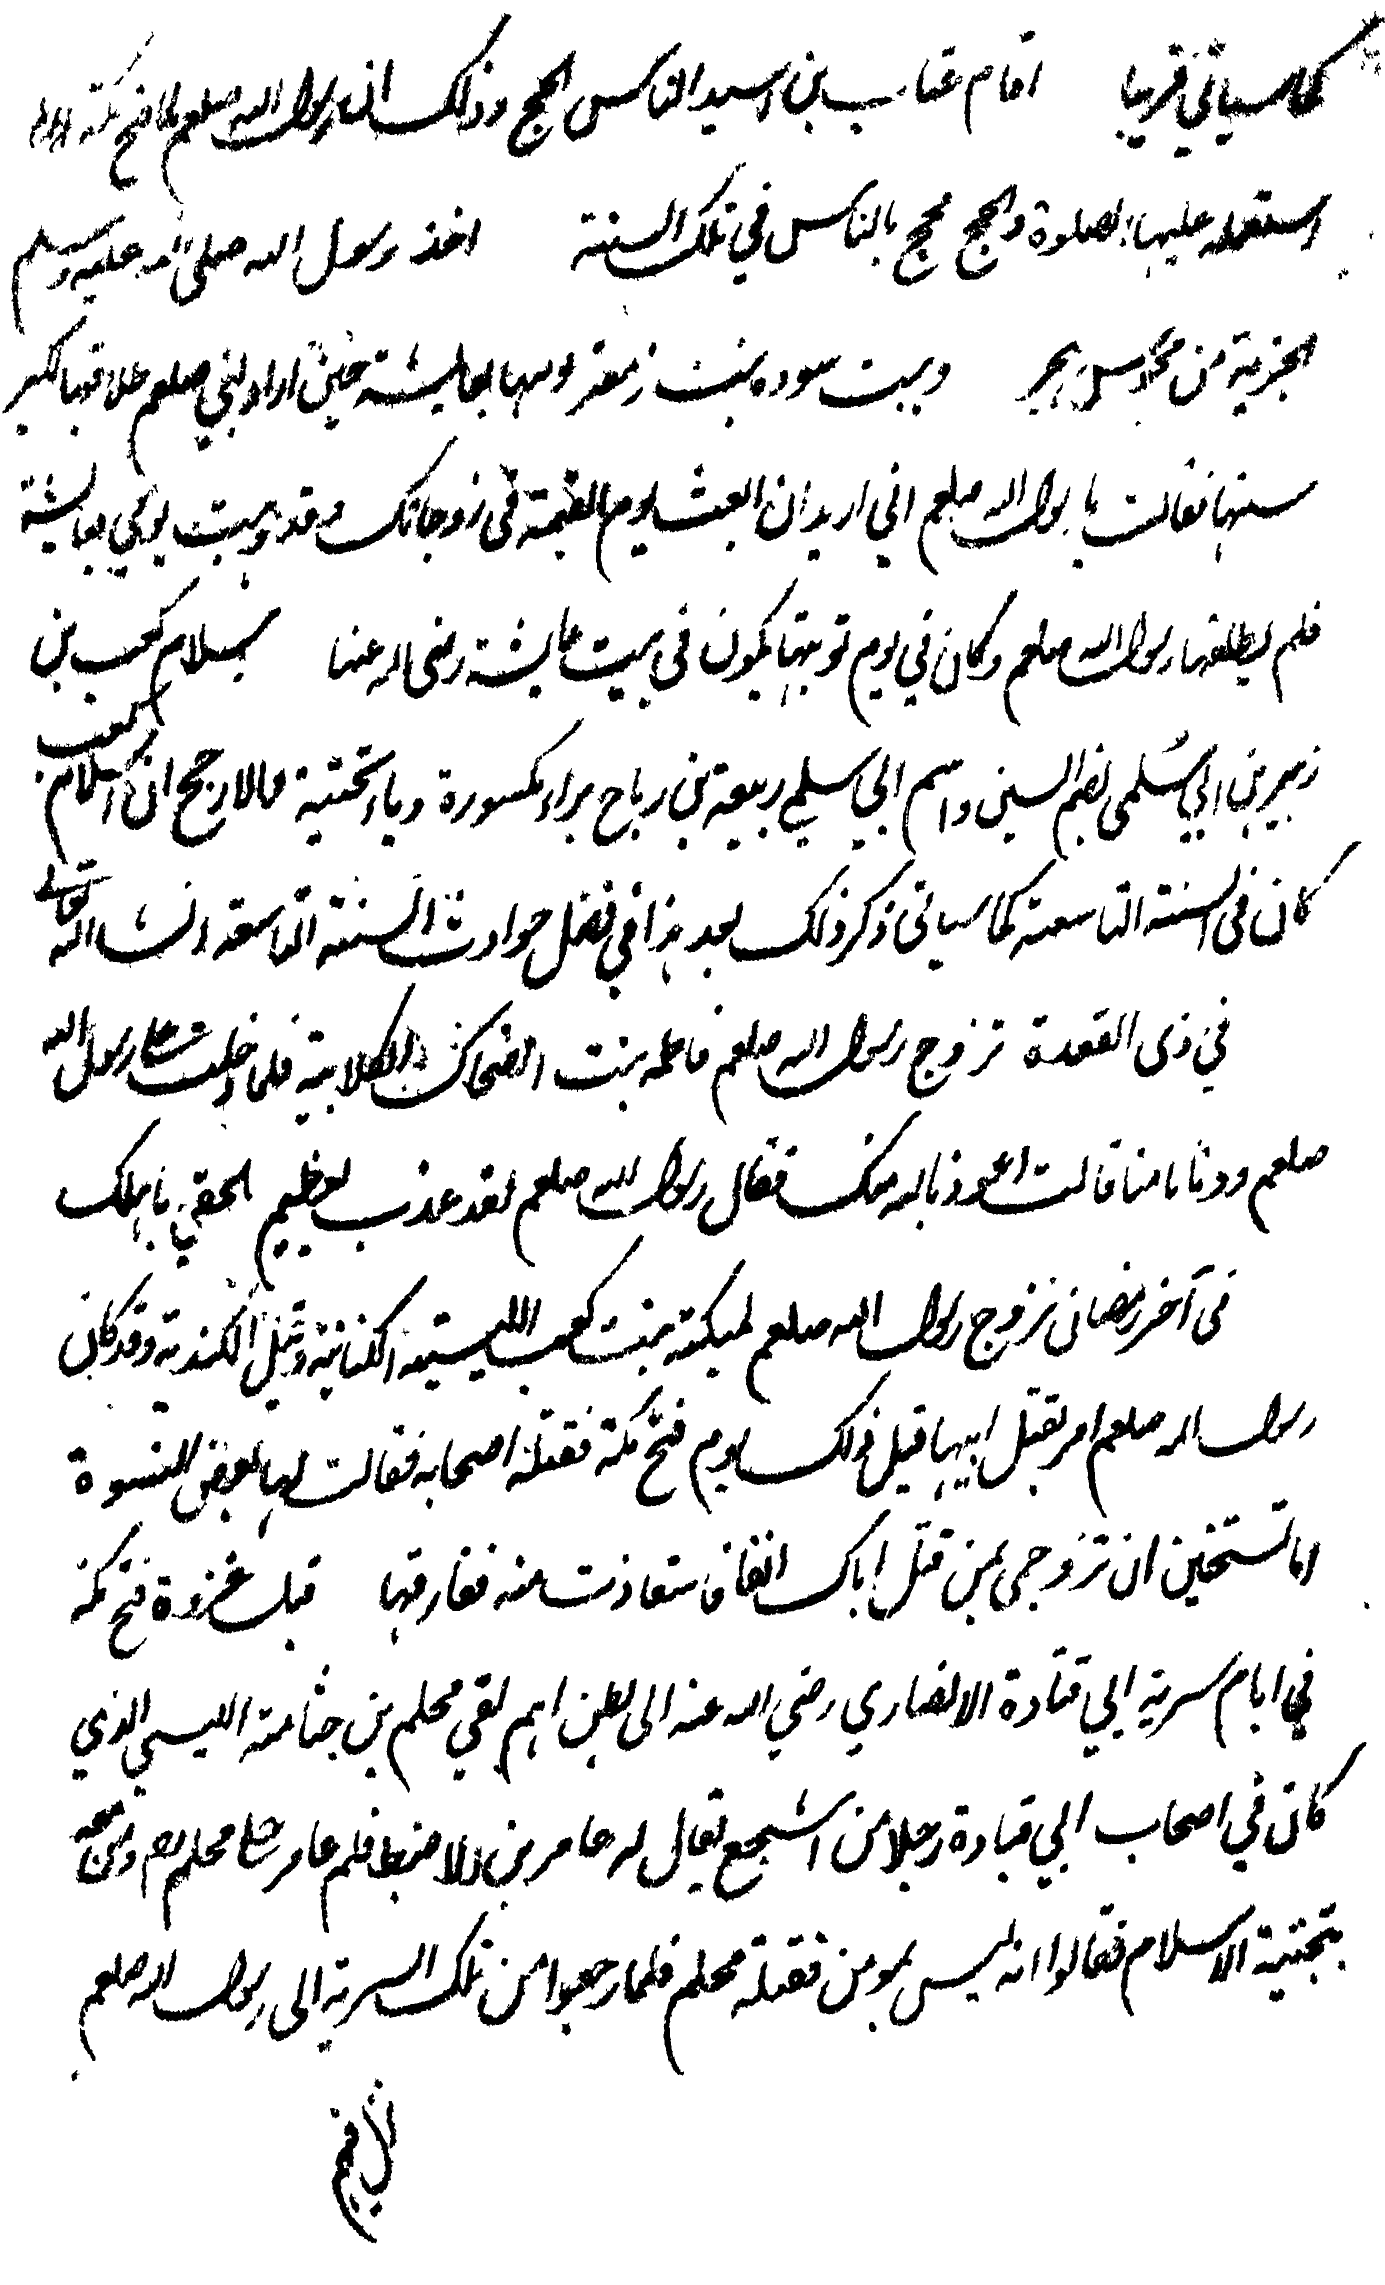 كما سياتي قريبا اقام عتاب بن اسيد الناس الحج وذلك ان رسول الله صلعم لما فتح مكة
استعمله عليها الصلوة والحج فحج بالناس في تلك السنة اخذ رسول الله صلى الله عليه وسلم
الجزية من مجوس هجر وهبت سوده بنت زمعة يومها لعايشة حين اراد النبي صلعم طلاقها لكبر
سنها فقالت يا رسول الله صلعم اني اريد ان ابعث يوم القيمة في زوجاتك وقد وهبت يومي لعايشة
فلم يطلقها رسول الله صلعم وكان في يوم نوبتها يكون في بيت عايشة رضى الله عنها اسلام كعب بن
زهير بن ابي سُلمى بضم السين واسم ابي سلمى ربيعة بن رياح براء مكسورة وياء تحتية والارجح ان اسلام كعب
كان في السنة التاسعة كما سياتى ذكر ذلك بعد هذا في فصل حوادث السنة التاسعة انشا الله تعالى
في ذى القعدة تزوج رسول الله صلعم فاطمه بنت الضحاك الكلابية فلما دخلت على رسول الله
صلعم ودنا منها قالت اعوذ بالله منك فقال رسول الله صلعم لقد عذت بعظيم الحقي باهلك
في آخر رمضان تزوج رسول الله صلعم مليكة بنت كعب الليثية الكنانية وقيل الكندية وقد كان
رسول الله صلعم امر بقتل ابيها قبل ذلك يوم فتح مكة فقتله اصحابه فقالت لها بعض النسوة
اما تستحين ان تزوجى بمن قتل اباك انفا فاستعاذت منه ففارقها قبل غزوة فتح مكة
في ايام سرية ابي قتادة الانصاري رضي الله عنه الى بطن اضم لقي محلم بن جثامة الليثي الذي
كان في اصحاب ابي قتادة رجلا من اشجع يقال له عامر بن الاضبط فلم عامر على محلم ومن معه
بتحية الاسلام فقالوا انه ليس بمومن فقتله محلم فلما رجعوا من تلك السرية الى رسول الله صلعم